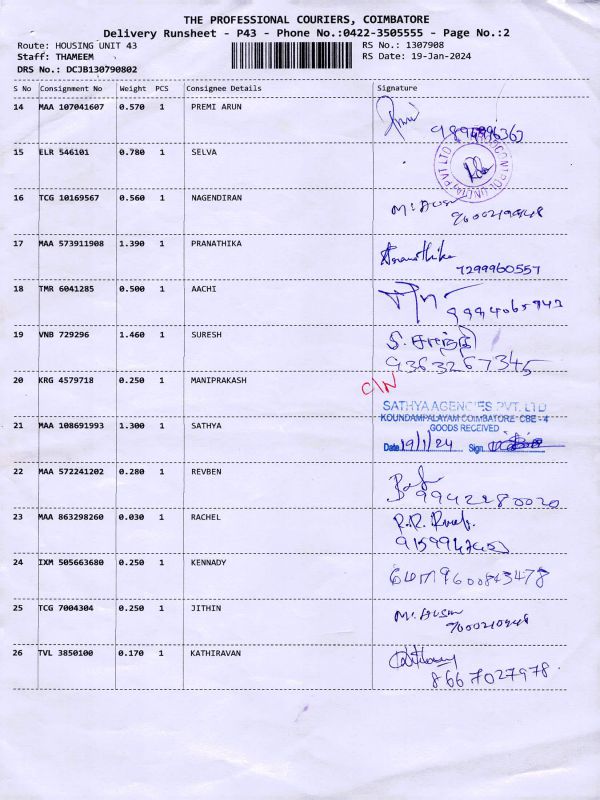 THE PROFESSIONAL COURIERS, COIMBATORE
Delivery Runsheet - P43 - Phone No.:0422-3505555 - Page No.:2
Route: HOUSING UNIT 43 RS No.: 1307908
Staff: THAMEEM RS Date: 19-Jan-2024
DRS No.: DCJB130790802
S No Consignment No Weight PCS Consignee Details Signature
14 MAA 107041607 0.570 1 PREMI ARUN
15 ELR 546101 0.780 1 SELVA
PVT LTD
16 TCG 10169567 0.560 1 NAGENDIRAN
17 MAA 573911908 1.390 1 PRANATHIKA Pranathika
7299960557
18 TMR 6041285 0.500 1 AACHI
19 VNB 729296 1.460 1 SURESH
9363267345
20 KRG 4579718 0.250 1 MANIPRAKASH C/N
SATHYA AGENCIES PVT. LTD
KOUNDAMPALAYAM COIMBATORE CBE - 4
21 MAA 108691993 1.300 1 SATHYA GOODS RECEIVED
Date 19/1/24 Sign
22 MAA 572241202 0.280 1 REVBEN
9942280020
23 MAA 863298260 0.030 1 RACHEL
24 IXM 505663680 0.250 1 KENNADY 9600843478
25 TCG 7004304 0.250 1 JITHIN
26 TVL 3850100 0.170 1 KATHIRAVAN
8667027978